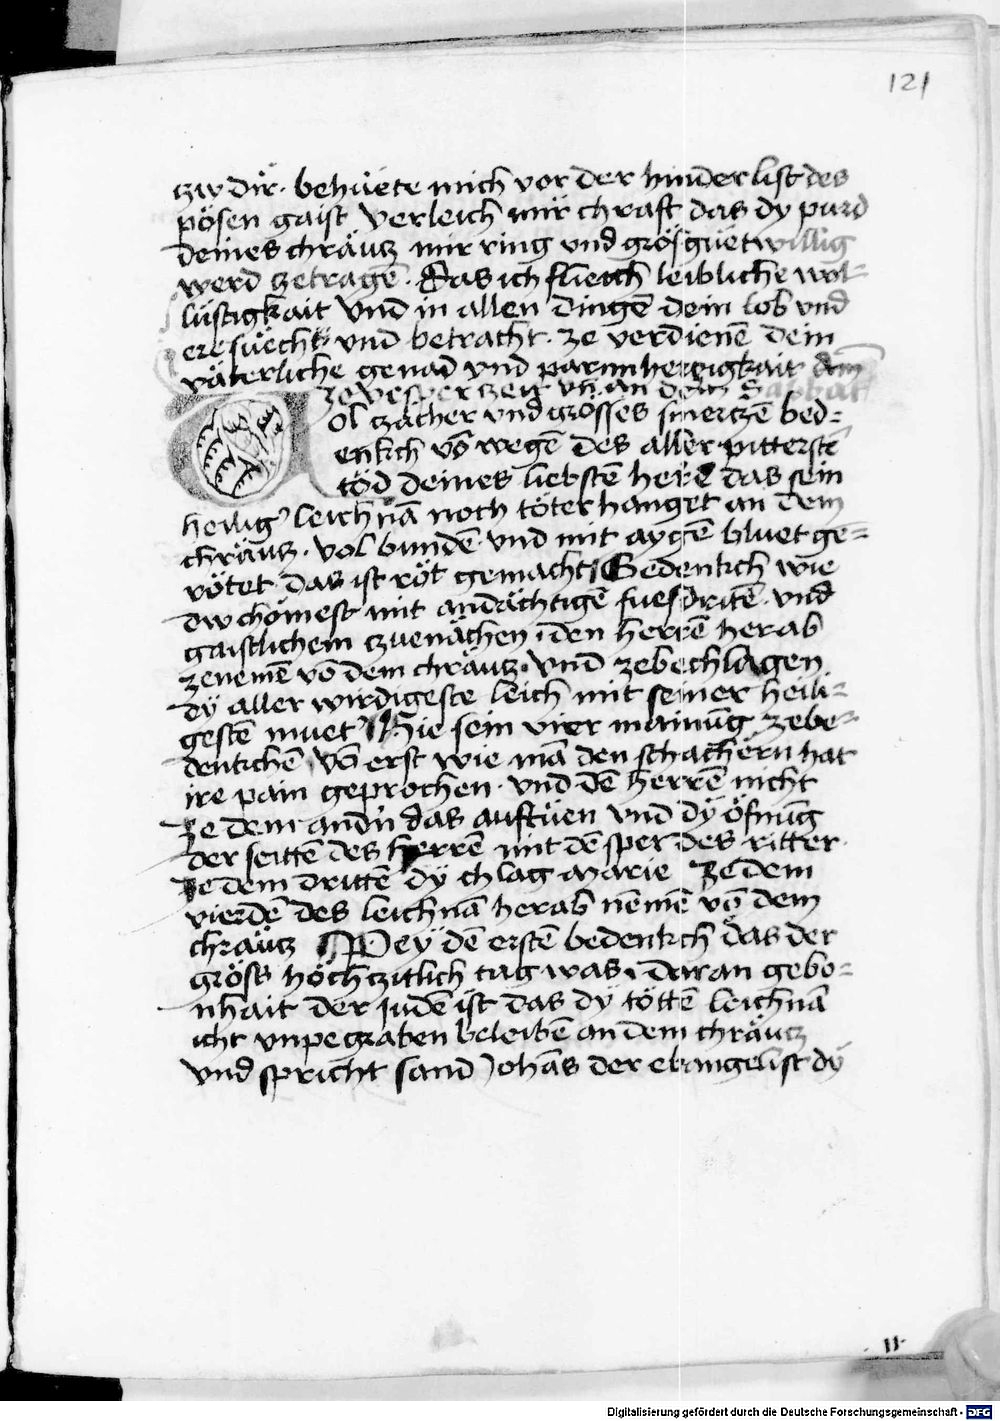 121
zw dir. behüete mich vor der hinderlist des
pösen gaist Verleich mir chraft das dy purd
deines chräutz mir ring vnd grös guetwillig
werd zetragē. Das ich fliech leibliche wol-
lüstigkait Vnd in allen dingē dein lob vnd
ere suech vnd betracht. ze verdienē dein
väterliche genad vnd parmherzigkait amē
ze vesper zeit vn̄ an dem Sabbat
Uol zacher vnd grösses smertzē bed=
enkch vō wegē des aller pitterstē
töd deines liebstē herē das sein
heilig' leichnā noch töter hanget an dem
chräutz. vol bundē vnd mit aygē bluet ge=
rötet das ist röt gemacht Gedenkch wie
dw chömest mit andächtigē fuesdritē. vnd
gaistlichem zuenächen. den herrē herab
zenemē vō dem chräutz. Vnd zebechlagen
dy aller wirdigeste leich mit seiner heili=
gestē muet' Hie sein vier mainūg zebe=
denkchē Vō erst wie mā den schachern hat
ire pain geprochen. vnd dē herrē nicht
Ze dem andn̄ das auftüen vnd dy öfnūg
der seittē des herrē mit dē sper des ritter.
Ze dem drittē dy chlag marie Ze dem
vierdē des leichnā herab nemē vō dem
chräutz Pey dē erstē bedenkch das der
gröss höchzitlich tag was. daran gebo=
nhait der judē ist das dy töttē leichnā
icht vnpegraben beleibē an dem chräutz
Vnd spricht sand Johās der ebangelist dy
11.
Digitalisierung gefördert durch die Deutsche Forschungsgemeinschaft - DFG